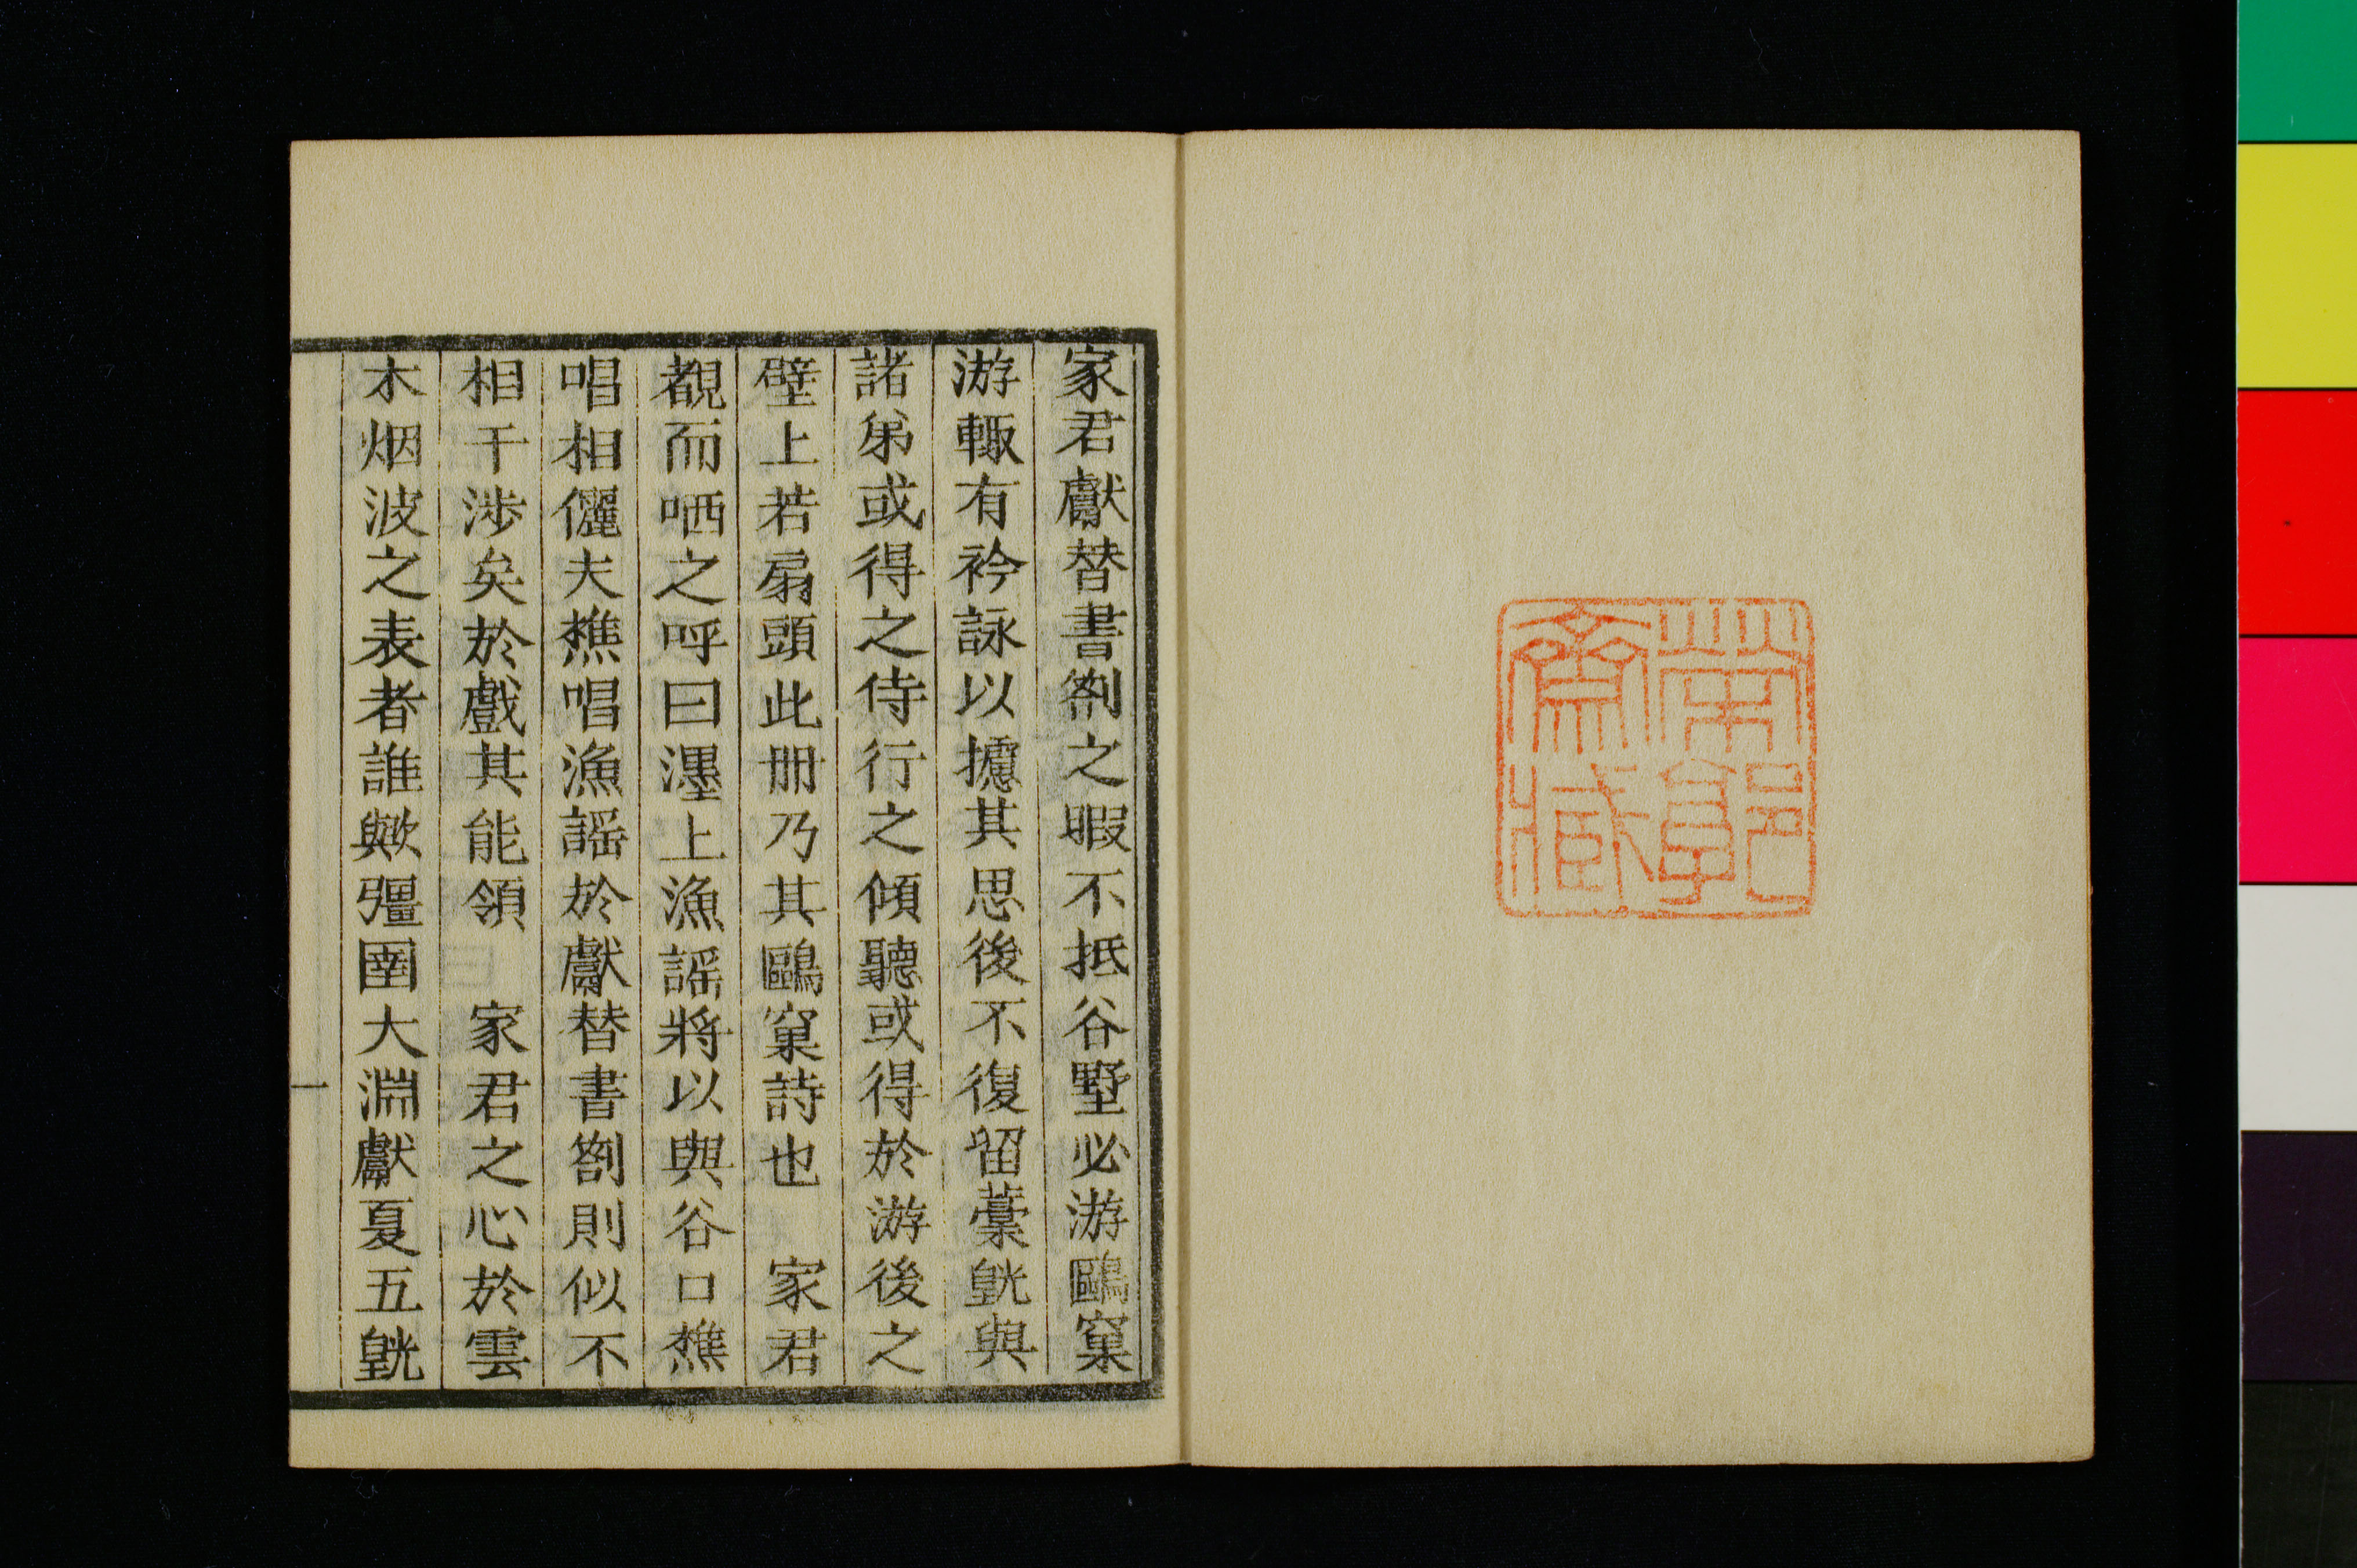 家君獻替書劄之暇不抵谷墅必游鷗窠
游輙有衿詠以攄其思後不復留藁皝與
諸弟或得之侍行之傾聽或得於游後之
壁上若扇頭此册乃其鷗窠詩也　家君
覩而哂之呼曰濹上漁謡將以與谷口樵
唱相儷夫樵唱漁謡於獻替書劄則似不
相干涉矣於戲其能領　家君之心於雲
木烟波之表者誰歟彊圉大淵獻夏五皝
一
齋藏